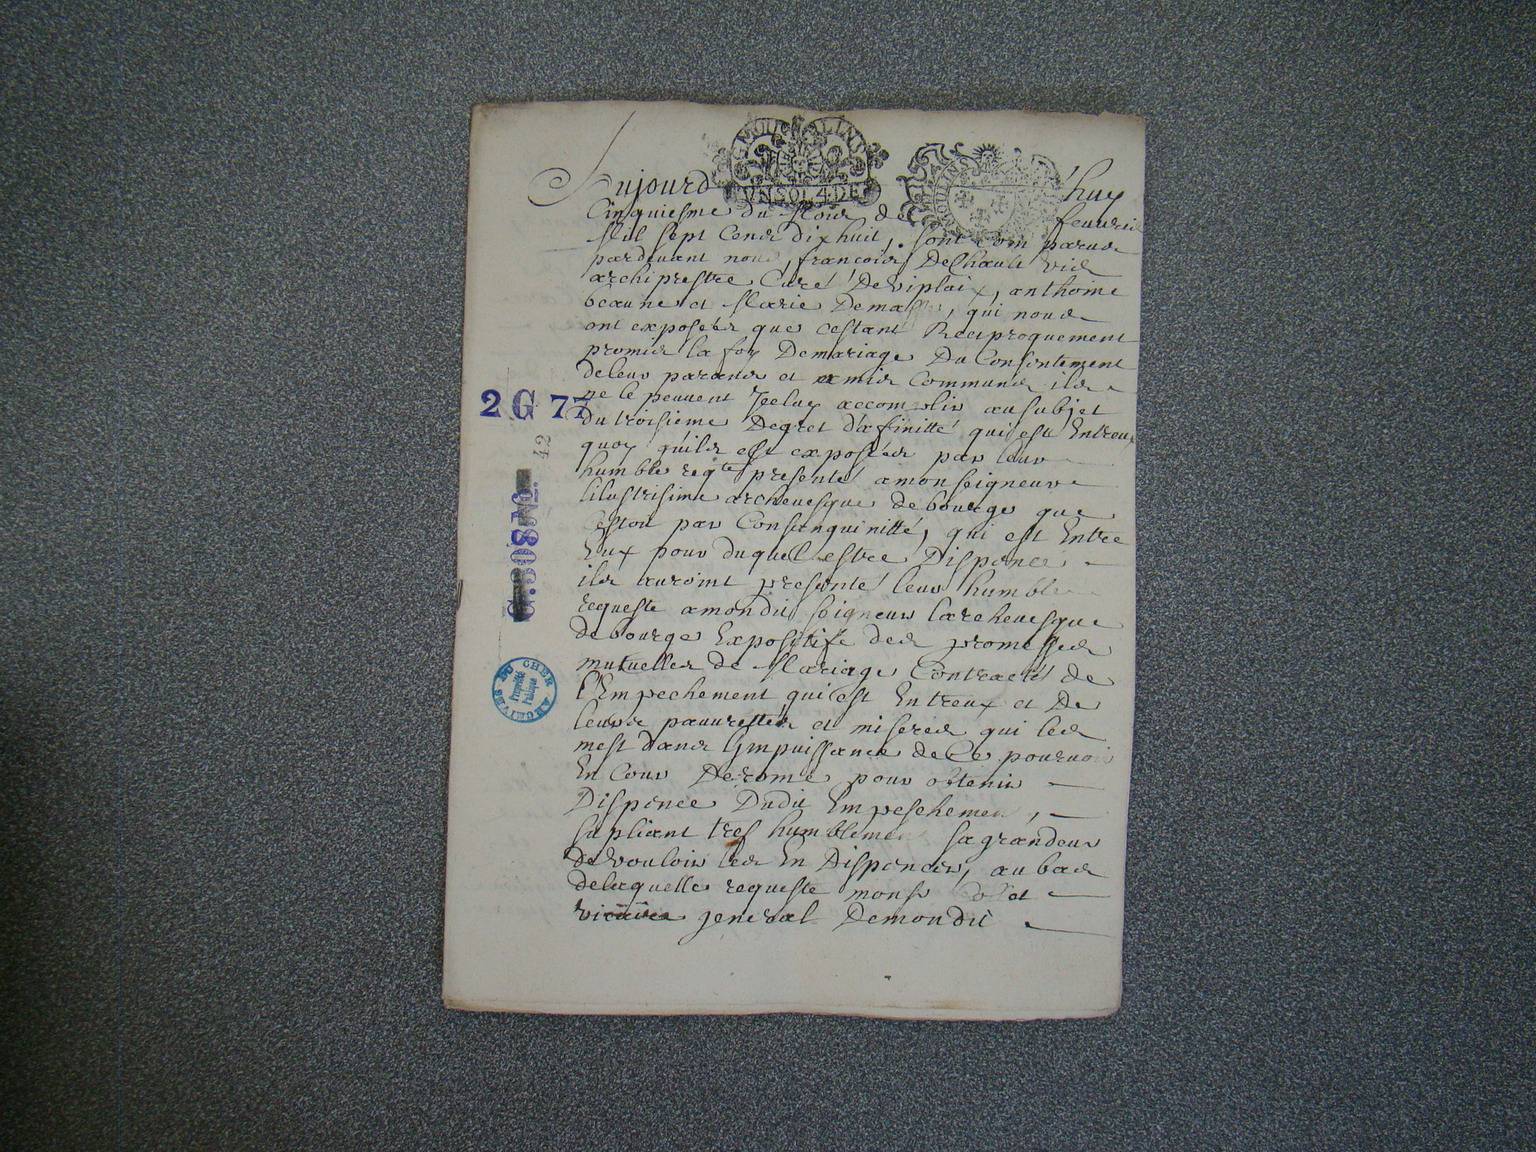 MOULINS
UN SOL 4 DE
MOULINS
Aujourd'huy
Cinquiesme du Mois de feuvrie
Mil sept Cens dix huit, sont Com parus
pardevant nous, francois Deshault vis
archiprestre Curé De viplaix, anthoine
beaune et Marie Demas, qui nous
ont exposées que cestant Reciproquement
promis la foy Demariage Du Consentement
deleur parants et amis Communs ils
ne le peuvent Jceluy accomplir au subjet
du troisieme Degret d'afinitté qui est Entreux
quoy quils est exposées par leur
humble reqte presenté a monseigneur
lilustrisime archeuesque de bourge que
cestoit par Consanguinitté, qui est Entre
Eux pour duquel estre Dispencé
ils auroint presenté leur humble
requeste a mondit seigneur larcheuesque
de bourge Expositife des promesses
mutuelles de Mariage Contracté de
l'Empechement qui est Entreux et De
leurs pauurettés et miseres qui les
mest dans Limpuissance de Ce pouruoi
En Cour De rome pour obtenir
Dispence Dudit Empeschemen,
supliant tres humblemen sa grandeur
de vouloir les En Dispencer, au bas
delaquelle requeste monsr et
vicaire general Demondit
2 G 77
42
G. 308 No.
ARCHIVES DU CHER
Propriété
Publique